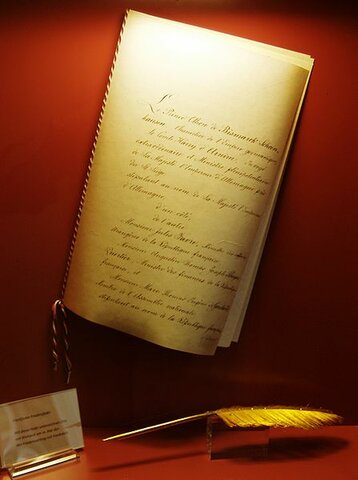 Le Prince Othon de Bismarck-Schoen-
hausen, Chancelier de l'Empire germanique
le Comte Harry d'Arnim, Envoyé
extraordinaire et Ministre plénipotentiaire
de Sa Majesté l'Empereur d'Allemagne près
du St Siège
stipulant au nom de Sa Majesté l'Empereur
d'Allemagne,
d'un côté,
de l'autre
Monsieur Jules Favre, Ministre des affaires
étrangères de la République française,
Monsieur Augustin Thomas Joseph Pouyer-
Quertier, Ministre des finances de la République
française, et
Monsieur Marc Thomas Eugène de Goulard,
Membre de l'Assemblée nationale
stipulant au nom de la République française